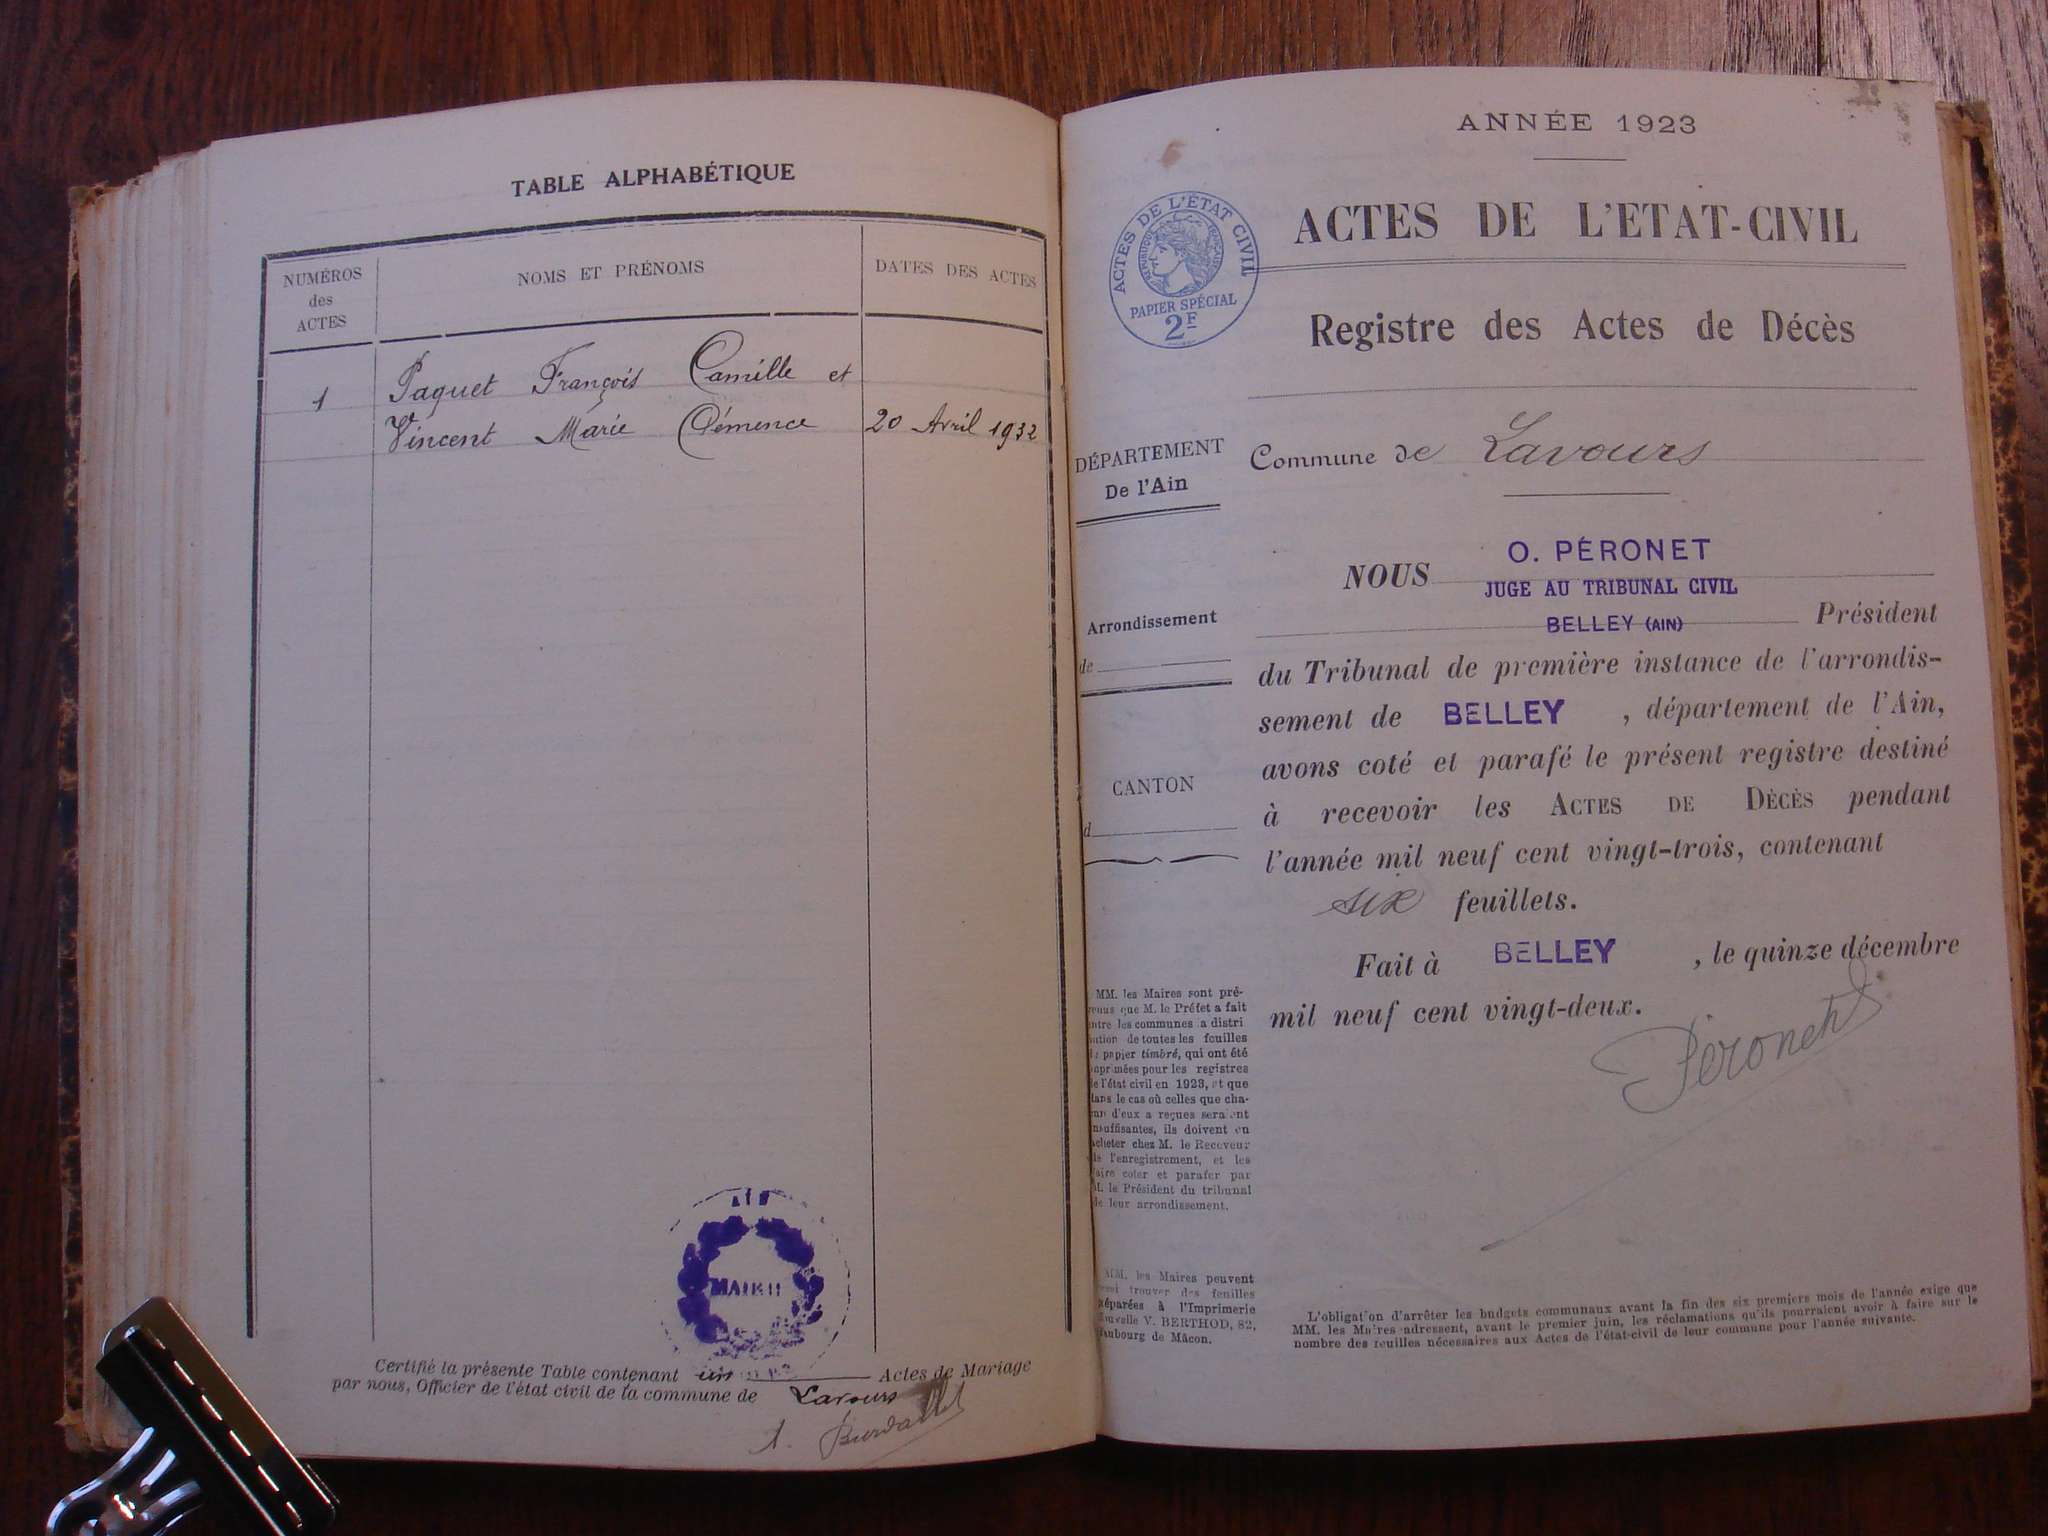 TABLE ALPHABÉTIQUE
NUMÉROS
des
ACTES
NOMS ET PRÉNOMS
DATES DES ACTES
1
Paquet François Camille et
Vincent Marie Clémence
20 Avril 1932
AIN
MAIRIE
Certifié la présente Table contenant un Actes de Mariage
par nous, Officier de l'état civil de la commune de Lavours
ANNÉE 1923
ACTES DE L'ÉTAT CIVIL
RÉPUBLIQUE FRANÇAISE
PAPIER SPÉCIAL
2F
ACTES DE L'ETAT-CIVIL
Registre des Actes de Décès
DÉPARTEMENT
De l'Ain
Arrondissement
de
CANTON
d
Commune de Lavours
NOUS O. PÉRONET
JUGE AU TRIBUNAL CIVIL
BELLEY (AIN) Président
du Tribunal de première instance de l'arrondis-
sement de BELLEY, département de l'Ain,
avons coté et parafé le présent registre destiné
à recevoir les ACTES DE DÉCÈS pendant
l'année mil neuf cent vingt-trois, contenant
six feuillets.
Fait à BELLEY, le quinze décembre
mil neuf cent vingt-deux.
Péronet
MM. les Maires sont pré-
venus que M. le Préfet a fait
entre les communes la distri
bution de toutes les feuilles
de papier timbré, qui ont été
imprimées pour les registres
de l'état civil en 1923, et que
dans le cas où celles que cha-
cun d'eux a reçues seraient
insuffisantes, ils doivent en
acheter chez M. le Receveur
de l'enregistrement, et les
faire coter et parafer par
M. le Président du tribunal
de leur arrondissement.
MM. les Maires peuvent
aussi trouver des feuilles
préparées à l'Imprimerie
Nouvelle V. BERTHOD, 82,
faubourg de Mâcon.
L'obligation d'arrêter les budgets communaux avant la fin des six premiers mois de l'année exige que
MM. les Maires adressent, avant le premier juin, les réclamations qu'ils pourraient avoir à faire sur le
nombre des feuilles nécessaires aux Actes de l'état-civil de leur commune pour l'année suivante.